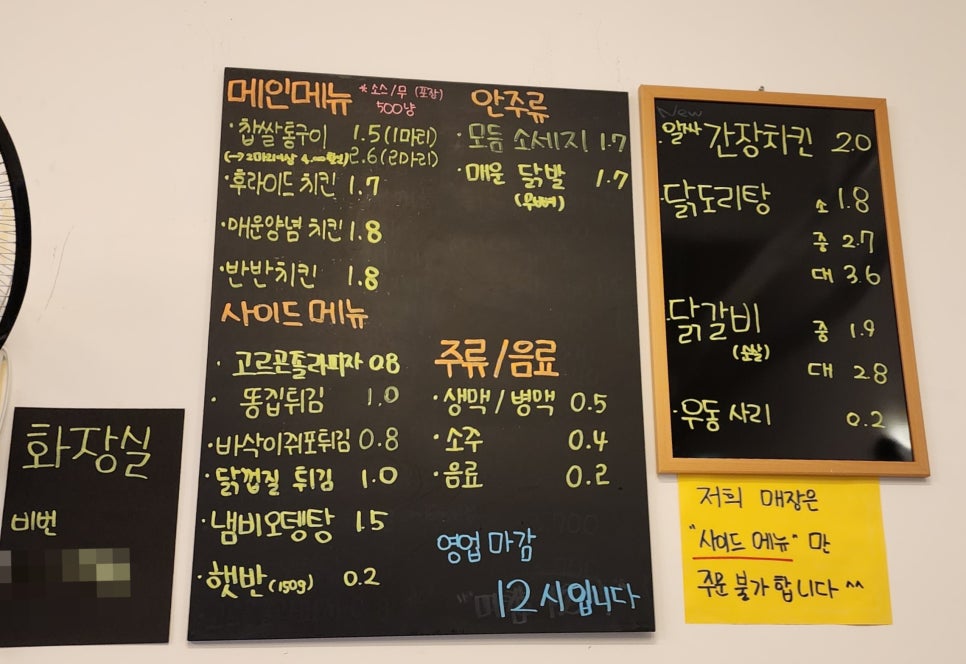 메인메뉴 *소스/무 (포장)
500냥
·찹쌀통구이 1.5(1마리)
2.6(2마리)
·후라이드치킨 1.7
·매운양념 치킨 1.8
·반반치킨 1.8
사이드 메뉴
·고르곤졸라피자 0.8
·똥집튀김 1.0
·바삭이쥐포튀김 0.8
·닭껍질 튀김 1.0
·냄비오뎅탕 1.5
·햇반(150g) 0.2
안주류
·모듬 소세지 1.7
·매운 닭발 1.7
주류/음료
·생맥/병맥 0.5
·소주 0.4
·음료 0.2
영업 마감
12시입니다
New
·알싸 간장치킨 2.0
·닭도리탕 소 1.8
중 2.7
대 3.6
·닭갈비 중 1.9
(순살)
대 2.8
·우동 사리 0.2
저희 매장은
"사이드 메뉴" 만
주문 불가합니다 ^^
화장실
비번